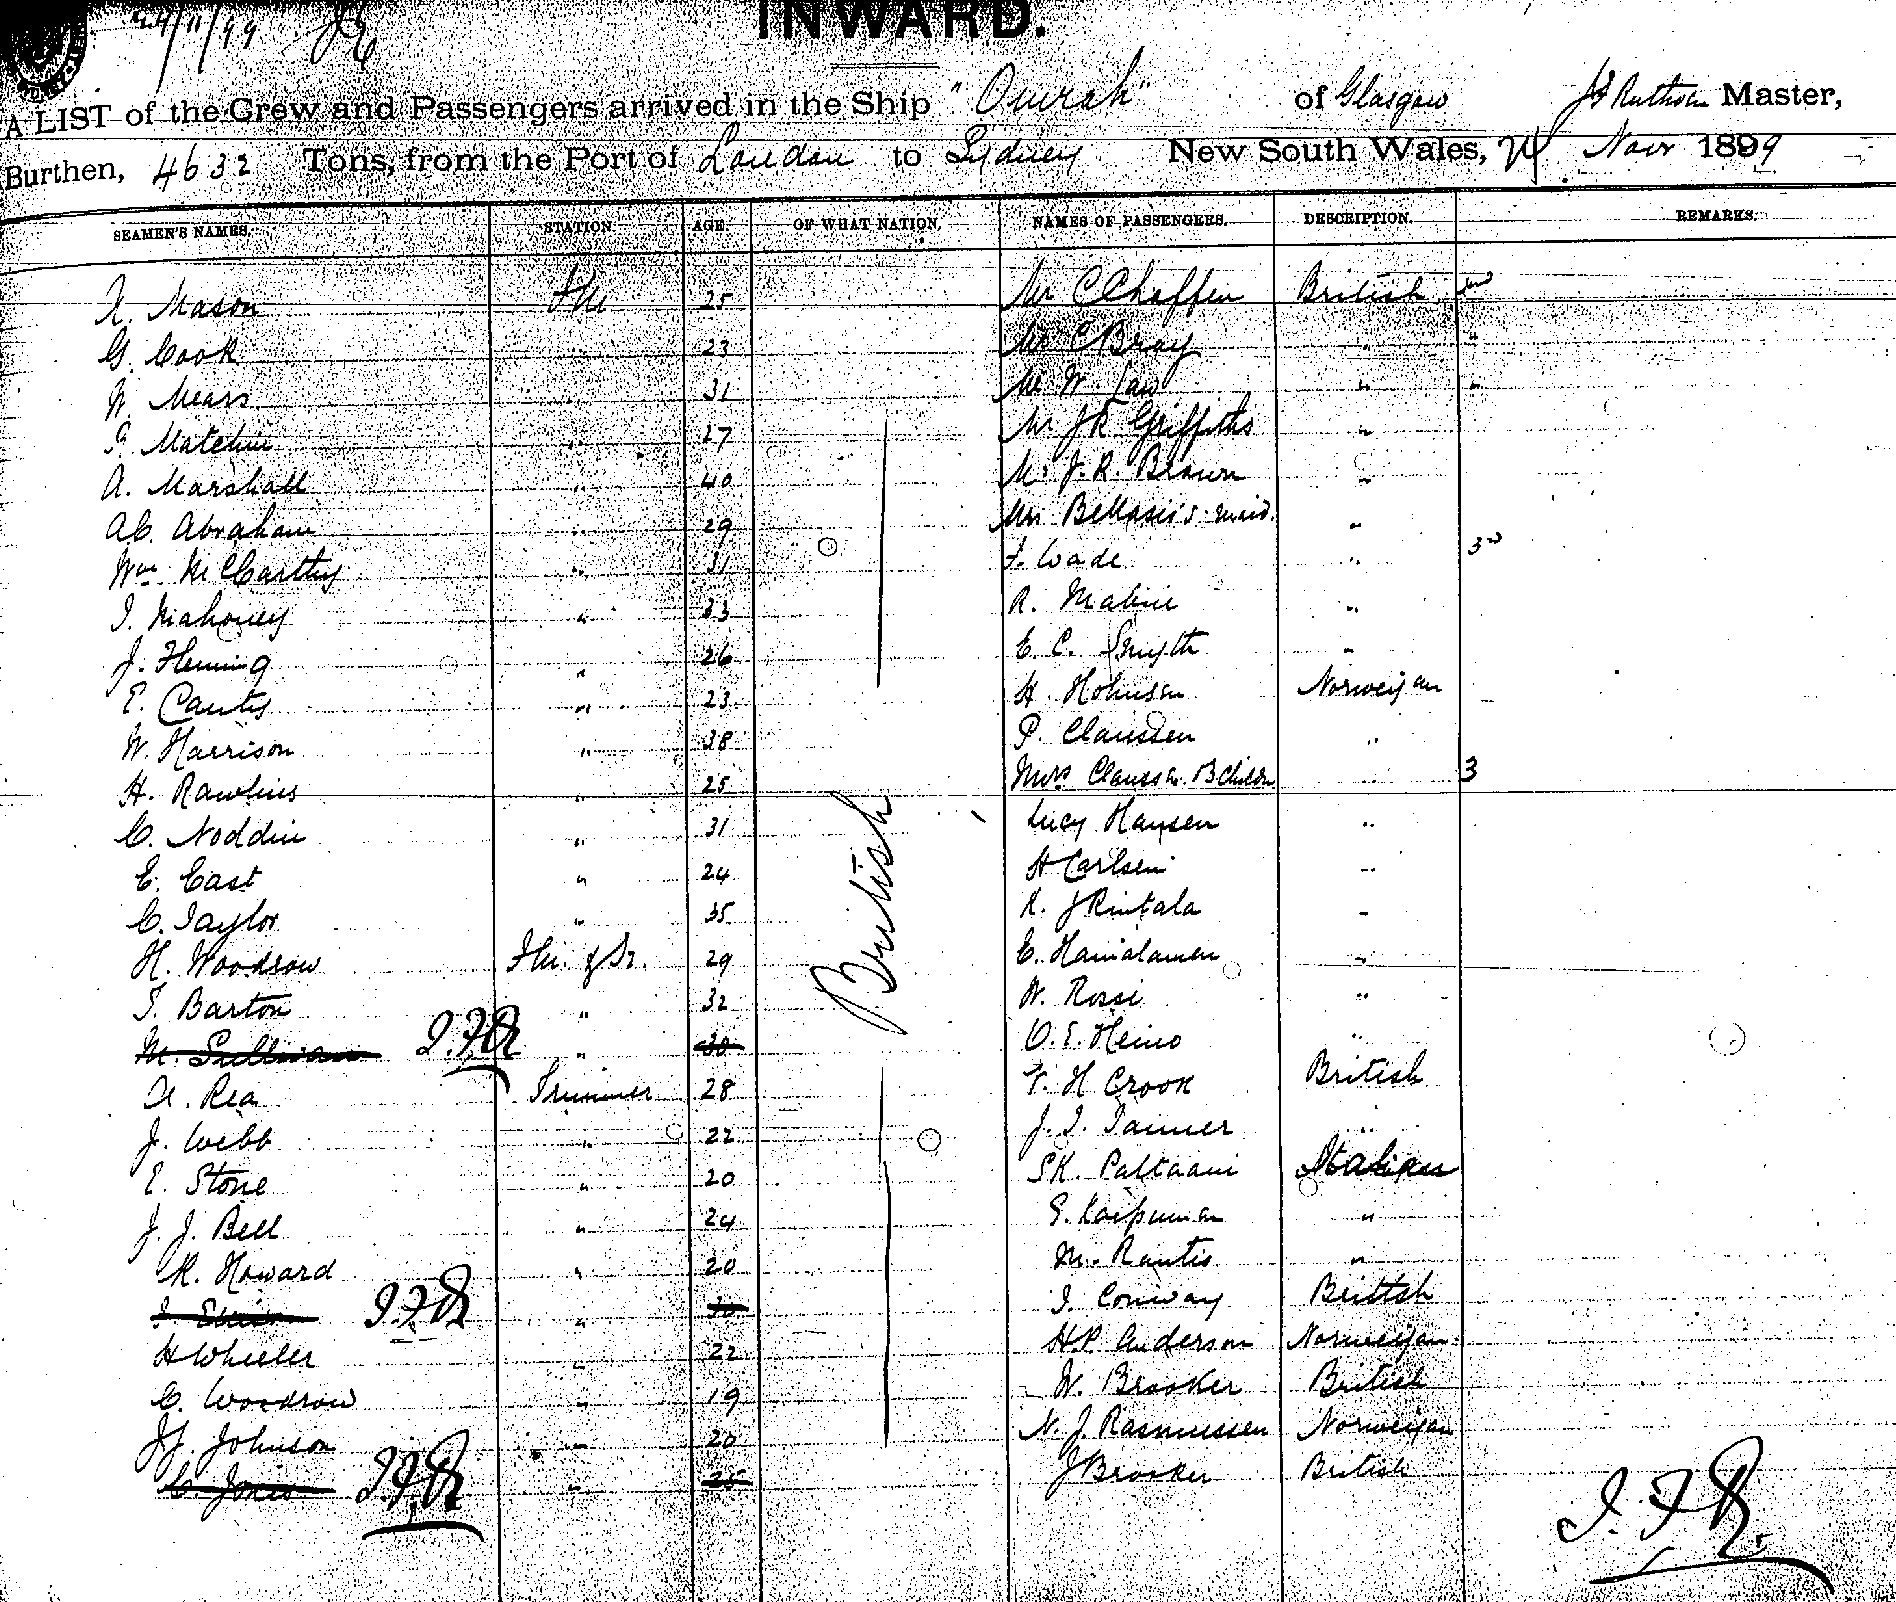 24/11/99
INWARD.
A LIST of the Crew and Passengers arrived in the Ship "Omrah" of Glasgow J F Ruthven Master,
Burthen, 4632 Tons, from the Port of London to Sydney New South Wales, 24 Novr 1899
SEAMEN'S NAMES. STATION AGE. OF WHAT NATION. NAMES OF PASSENGERS. DESCRIPTION. REMARKS.
Mason 25 Mr C Chaffer British
G. Cook " 23 Mr C Bray " "
W. Mears " 31 Mr W. Law " "
Matchin " 27 Mr J R Griffiths "
A. Marshall " 40 Mr J. R. Brown "
AC. Abraham " 29 Mrs Bellasis's maid. "
Wm McCarthy " 31 F. Wade " 3rd
T. Mahoney " 33 R. Mabin "
J. Fleming " 26 E. C. Smyth "
E. Cantey " 23 H. Hohnsen Norweijan
W. Harrison " 38 P. Claussen "
H. Rawlins " 25 Mrs Claussen 3 Children " 3
C. Noddin " 31 Lucy Hansen "
E. East " 24 H Carlsen "
C. Taylor " 35 K. J Rintala "
H. Woodrow 29 British E. "
T. Barton " 32 W. Rossi "
M. Sullivan J.F.R " 30 O. E. Heino "
A. Rea Trimmer 28 F. H Crook British
J. Webb " 22 J. T. Tanner "
E. Stone " 20 S K. Paltaani Italian
J. J. Bell " 24 "
R. Howard " 20 M. Rantis "
J.F.R " 30 T. Conway British
H Wheeler " 22 H.P. Anderson Norweijan
C. Woodrow " 19 W. Brooker British
J.J. Johnson " 20 N. J. Rasmussen Norweijan
C. Jones J.F.R " 25 J Brooker British
J.F.R.